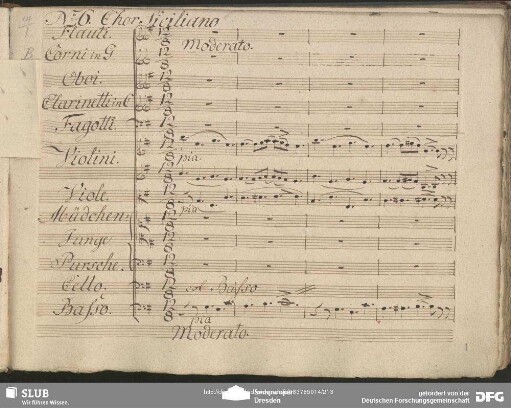 No 6. Chor. Siciliano
Flauti.
Moderato.
Corni in G.
Oboi.
Clarinetti in C
Fagotti.
Violini.
pia
Viole.
pia
Mädchen.
Junge
Pursche.
Cello.
Basso
Basso.
pia
Moderato.
1
SLUB
Wir führen Wissen.
Dresden
gefördert von der
Deutschen Forschungsgemeinschaft
DFG